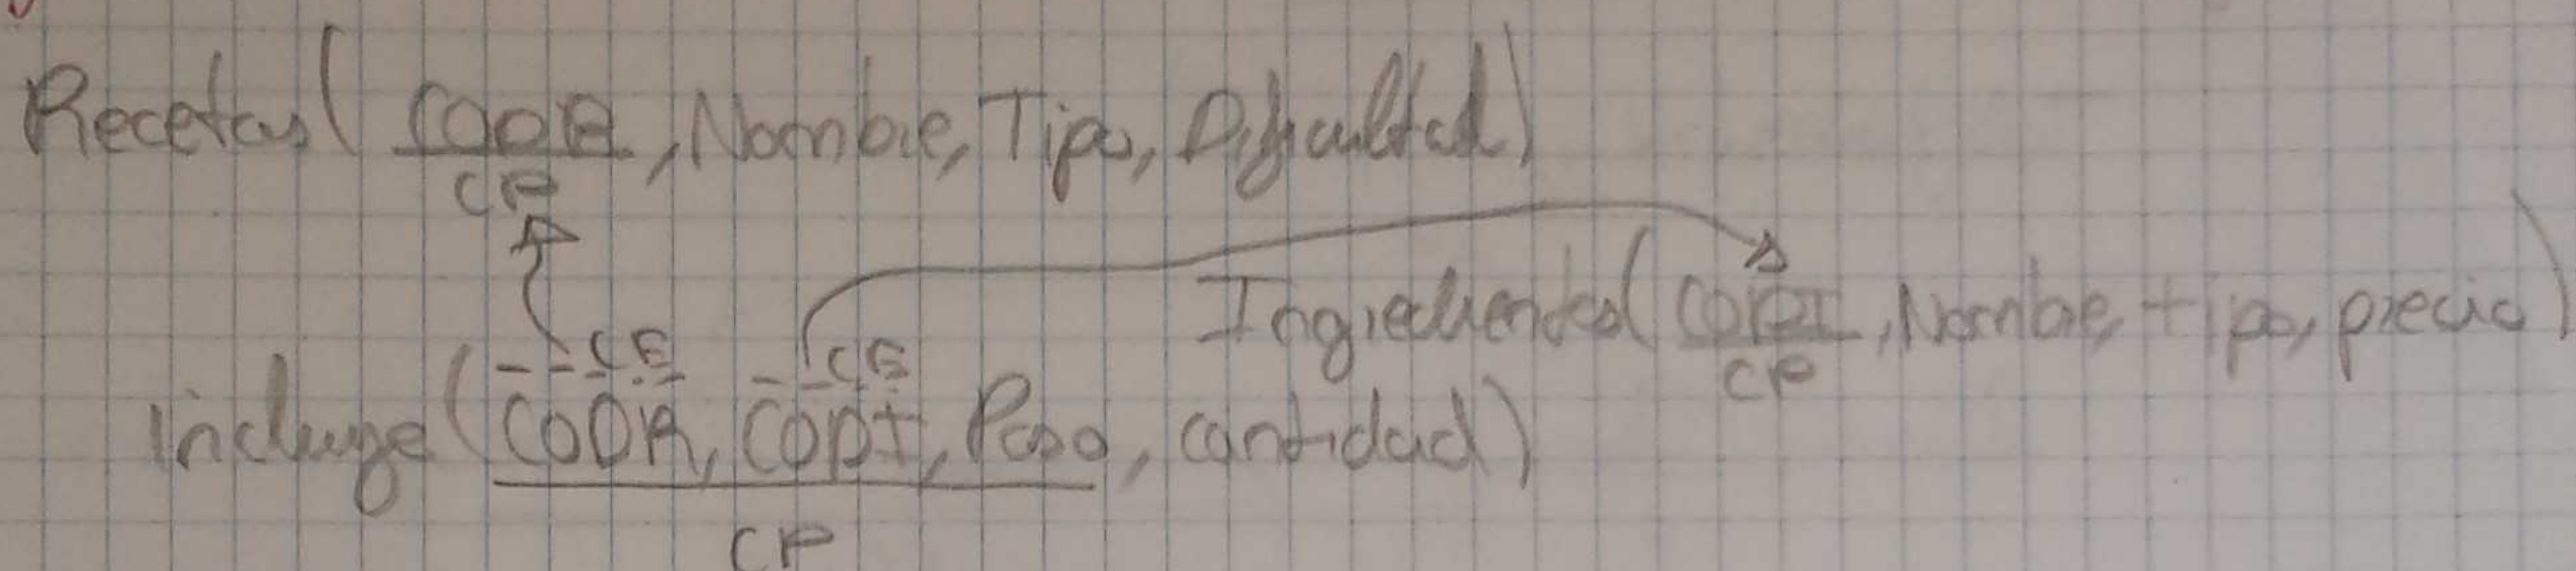 Recetas( CODR, Nombre, Tipo, Dificultad)
CP
Ingredientes( CODI, Nombre, tipo, precio)
CP
CE CE
incluye( CODR, CODI, Paso, cantidad)
CP